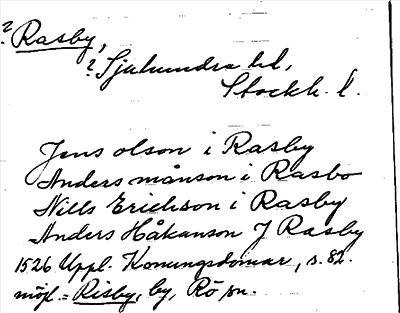 ? Rasby,
? Sjuhundra hd,
Stockh. l.
Jens olson i Rasby
Anders månson i Rasbo
Nills Erichson i Rasby
Anders Håkanson J Rasby
1526 Uppl. Konungsdomar, s. 82.
möjl. = Risby, by, Rö sn.